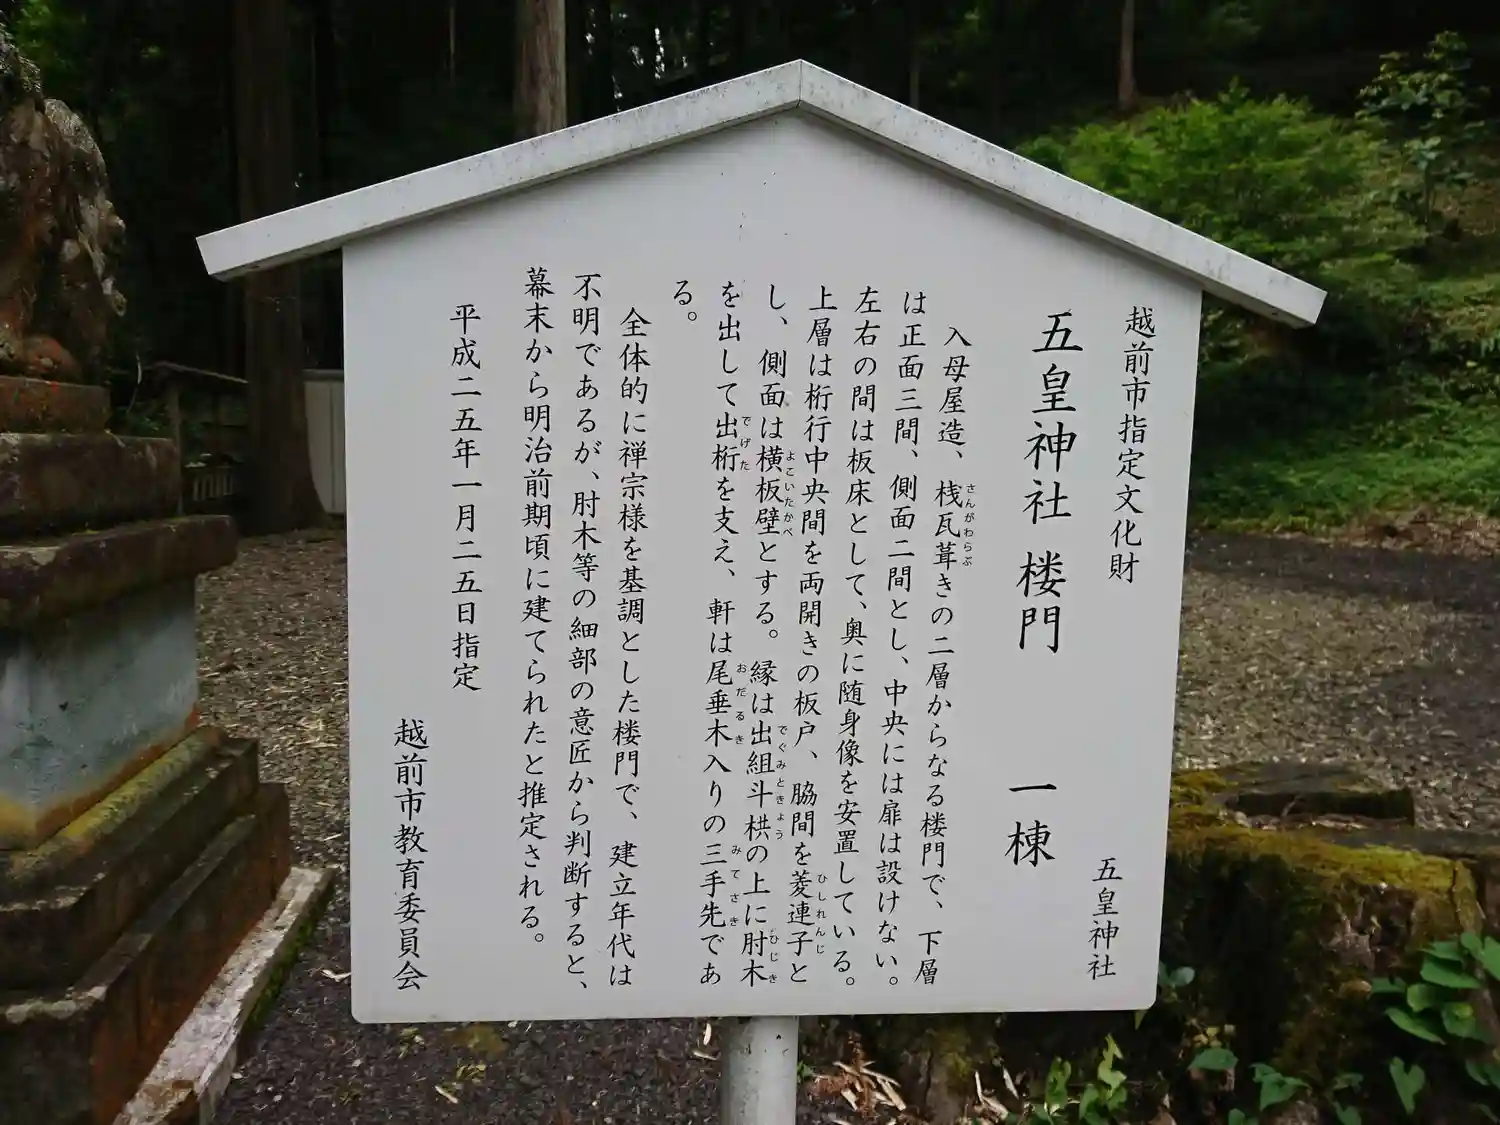 越前市指定文化財
五皇神社 楼門 一棟
五皇神社
入母屋造、桟瓦葺きの二層からなる楼門で、下層
さんがわらぶ
は正面三間、側面二間とし、中央には扉は設けない。
左右の間は板床として、奥に随身像を安置している。
上層は桁行中央間を両開きの板戸、脇間を菱連子と
ひしれんじ
し、側面は横板壁とする。縁は出組斗栱の上に肘木
よこいたかべ
でぐみときょう
ひじき
を出して出桁を支え、軒は尾垂木入りの三手先であ
でげた
おだるき
みてさき
る。
全体的に禅宗様を基調とした楼門で、建立年代は
不明であるが、肘木等の細部の意匠から判断すると、
幕末から明治前期頃に建てられたと推定される。
平成二五年一月二五日指定
越前市教育委員会